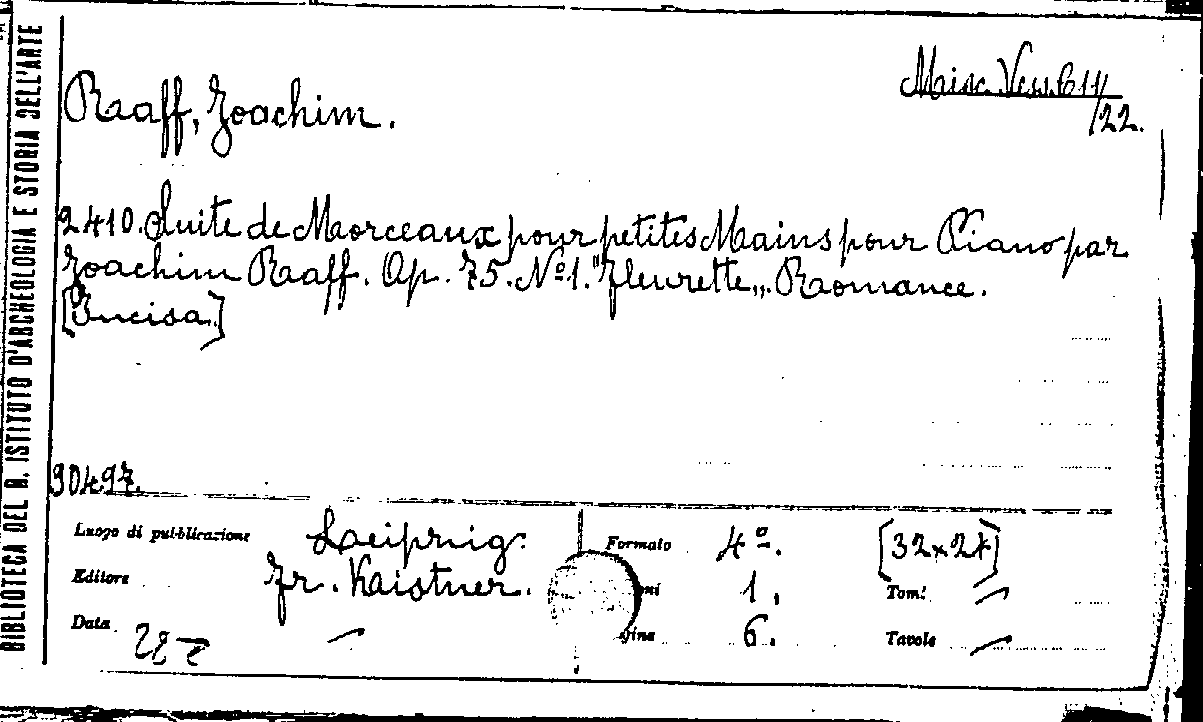 BIBLIOTECA DEL R. ISTITUTO D'ARCHEOLOGIA E STORIA DELL'ARTE
Misc. Vess. 611/
/22.
Raaff, Joachim.
2410. Suite de Morceaux pour petites Mains pour Piano par
Joachim Raaff. Op. 75. Nº 1. "Fleurette„. Romance.
[Incisa.]
90497.
Luogo di pubblicazione Laeipzig.
Formato 4º. [32x27]
Editore Fr. Kaistner.
1. Tomi
Data
6. Tavole